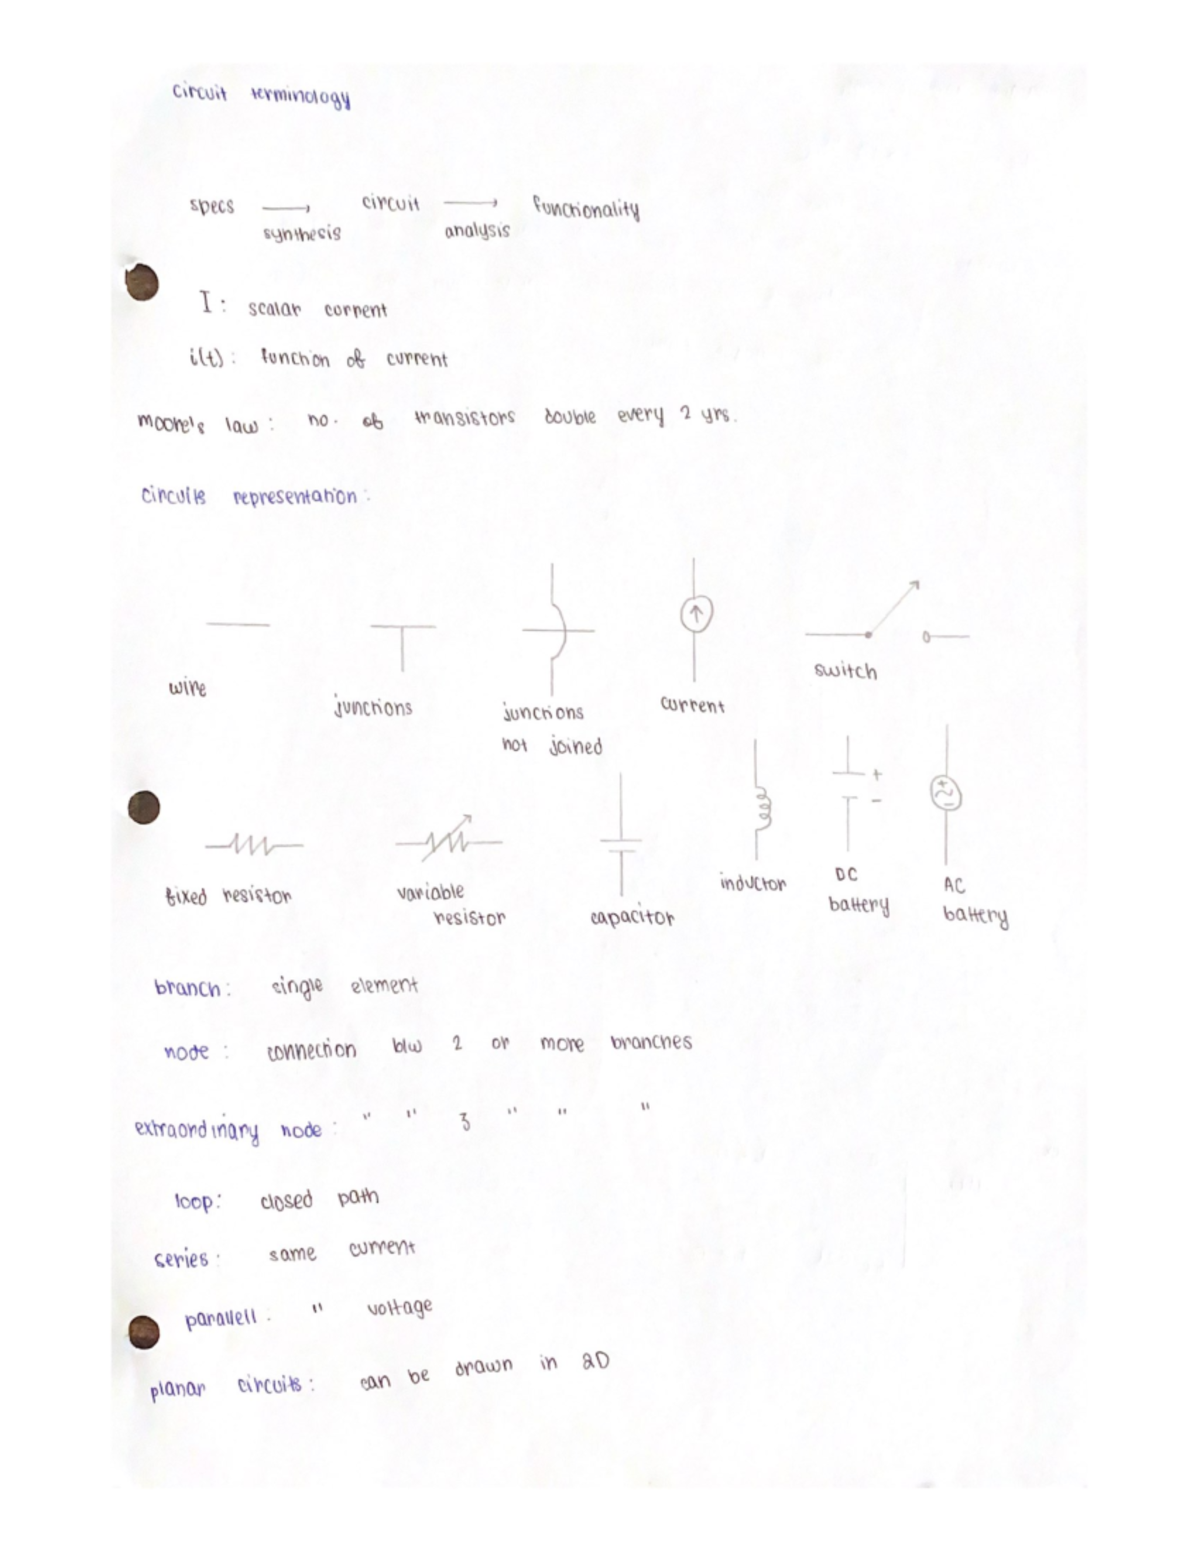 circuit terminology
specs ⟶ circuit ⟶ functionality
synthesis analysis
I : scalar corrent
i(t) : function of current
moore's law : no. of transistors double every 2 yrs.
circuits representation :
wire
junctions
junctions
not joined
current
switch
fixed resistor
variable
resistor
capacitor
inductor
+
-
DC
battery
+
~
-
AC
battery
branch : single element
node : connection b/w 2 or more branches
extraordinary node : " " 3 " " "
loop : closed path
series : same current
parallell : " voltage
planar circuits : can be drawn in 2D